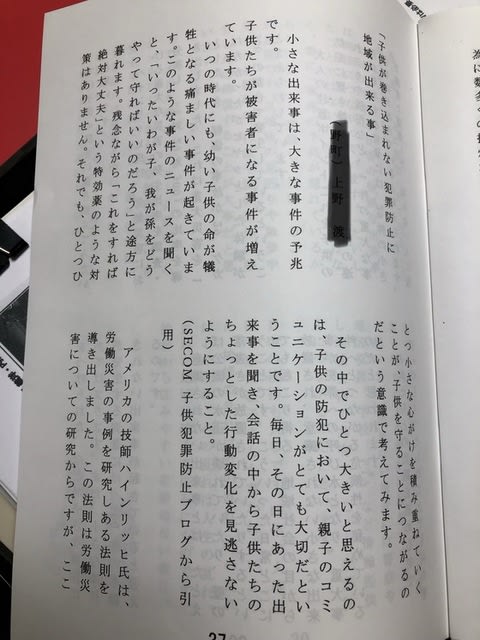 「子供が巻き込まれない犯罪防止に
地域が出来る事」
（野町）上野　渡
小さな出来事は、大きな事件の予兆
です。
子供たちが被害者になる事件が増え
ています。
いつの時代にも、幼い子供の命が犠
牲となる痛ましい事件が起きていま
す。このような事件のニュースを聞く
と、「いったいわが子、我が孫をどう
やって守ればいいのだろう」と途方に
暮れます。残念ながら「これをすれば
絶対大丈夫」という特効薬のような対
策はありません。それでも、ひとつひ
とつ小さな心がけを積み重ねていく
ことが、子供を守ることにつながるの
だという意識で考えてみます。
その中でひとつ大きいと思えるの
は、子供の防犯において、親子のコミ
ュニケーションがとても大切だとい
うことです。毎日、その日にあった出
来事を聞き、会話の中から子供たちの
ちょっとした行動変化を見逃さない
ようにすること。
（SECOM 子供犯罪防止ブログから引
用）
アメリカの技師ハインリッヒ氏は、
労働災害の事例を研究しある法則を
導き出しました。この法則は労働災
害についての研究からですが、ここ
37